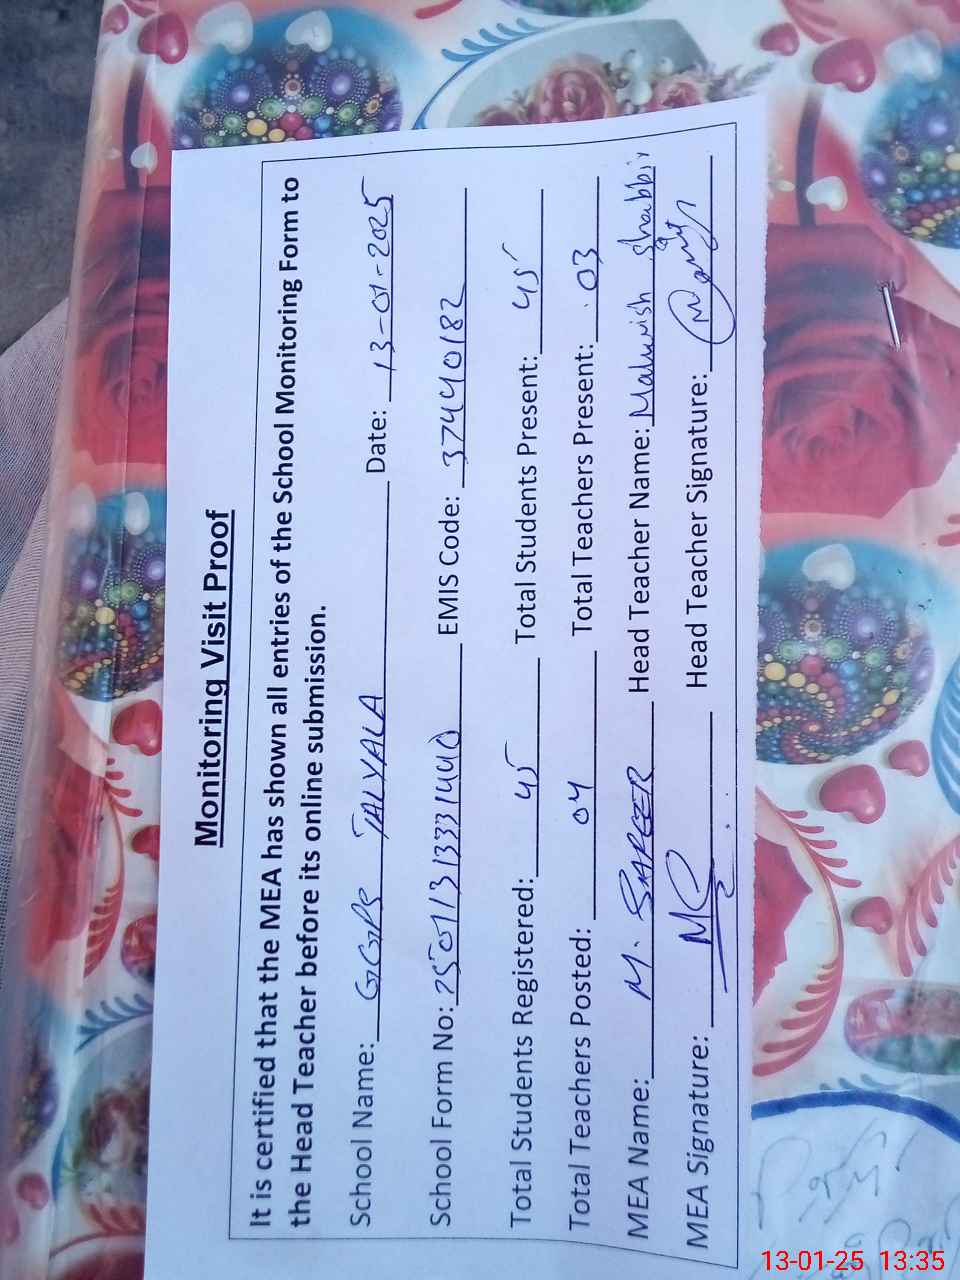 Monitoring Visit Proof
It is certified that the MEA has shown all entries of the School Monitoring Form to
the Head Teacher before its online submission.
School Name: GGPS TALYALA Date: 13-01-2025
School Form No: 25011313331440 EMIS Code: 37440182
Total Students Registered: 45 Total Students Present: 45
Total Teachers Posted: 04 Total Teachers Present: 03
MEA Name: M. SAFEER Head Teacher Name: Mahwish Shabbir
MEA Signature: Head Teacher Signature:
13-01-25 13:35